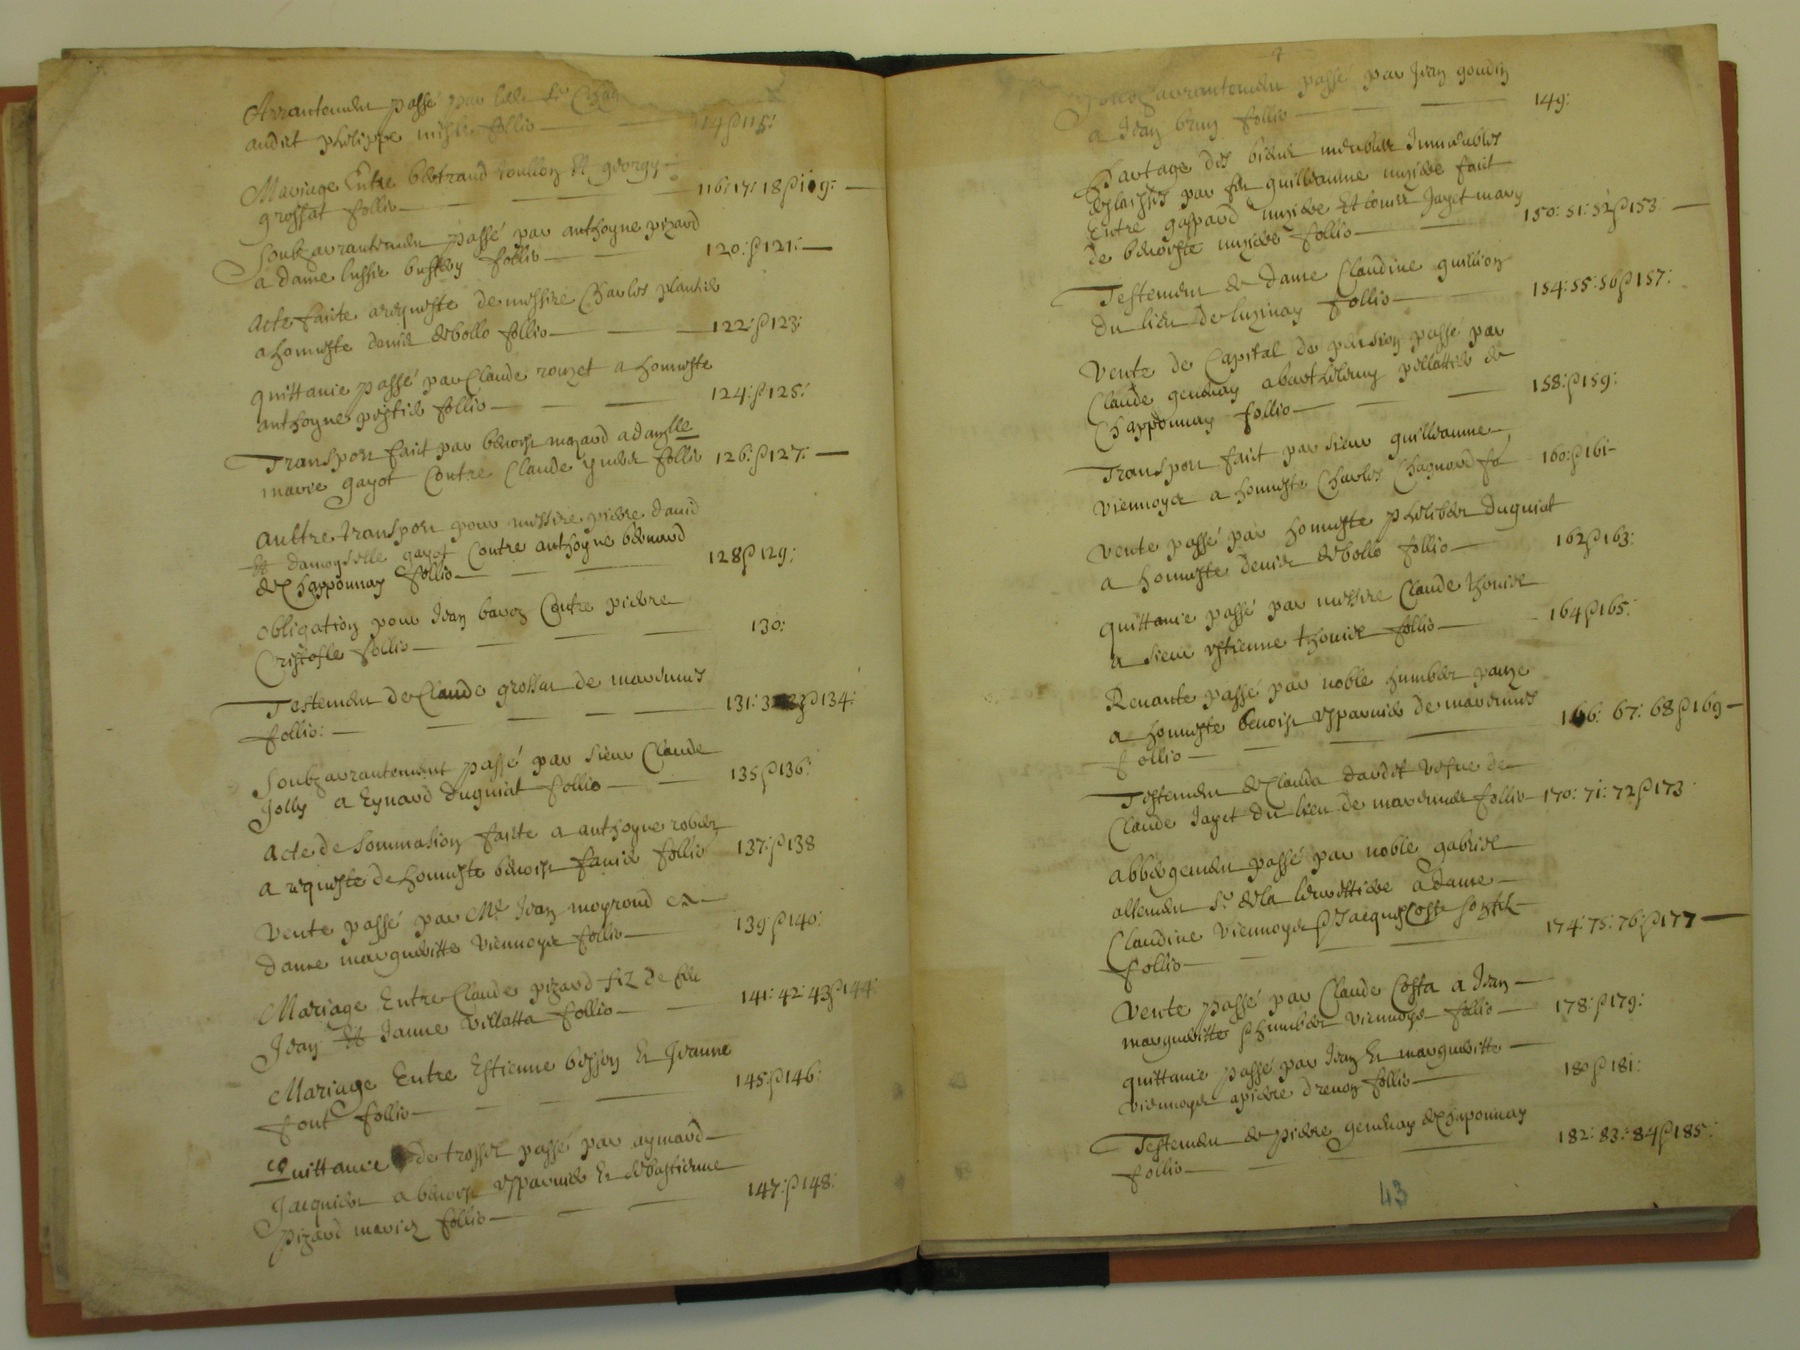 Arrantemen passé par
audict phelippe follio 114 & 115:
Mariage Entre bertrand Et georgy
grossat follio 116: 17: 18 & 119:
Soubzarrantemen passé par anthoyne pizard
a dame lussie follio 120: & 121:
Acte faicte a requeste de messire Charles plantier
a honneste denis debollo follio 122: & 123:
quittance passé par Claude rouzet a honneste
anthoyne follio 124: & 125:
Transport faict par benoist mozard a damzlle
marie gayot Contre Claude follio 126: & 127:
aultre transport pour messire pierre david
et damoyselle gayot Contre anthoyne bernard
de Chapponnay follio 128 & 129:
obligation pour Jean baroz Contre pierre
Cristofle follio 130:
Testemen de Claude grossat de marennes
follio: 131: & 134:
Soubzarrantement passé par sieur Claude
Jolly a Eynard duguiat follio 135 & 136:
Acte de sommasion faicte a anthoyne robert
a requeste de honneste benoist favier follio 137: & 138
Vente passé par Me Jean moyroud
dame margueritte Viennoys follio 139: & 140:
Mariage Entre Claude pizard filz de feu
Jean et Janne Villatta follio 141: 42: 43 & 144:
Mariage Entre Estienne besson Et Jeanne
font follio 145: & 146:
Quittance de trossel passé par aymard
Jacquier a benoist esparvier Et debastienne
pizard mariez follio 147: & 148:
Soubzarrantemen passé par Jean goudin
a Jean brun follio 149:
Partage des biens meubles Immeubles
delaissés par feu guillaume faict
Entre gaspard Et louise Jayet mary
de benoiste follio 150: 51: 52 & 153:
Testemen de dame Claudine guillion
du lieu de luzinay follio 154: 55: 56 & 157:
Vente de Capital de pension passé par
Claude genevay a barthelemy de
Chapponnay follio 158: & 159:
Transport faict par sieur guillaume
Viennoys a honneste Charles Chagnard fo 160: & 161
Vente passé par honneste phelibert duguiat
a honneste denis debollo follio 162 & 163:
quittance passé par messire Claude thonier
a sieur estienne thonier follio 164 & 165:
Revante passé par noble humbert panze
a honneste benoist esparvier de marennes
follio 166: 67: 68 & 169
Testemen de Clauda dardet vefve de
Claude Jayet du lieu de marennes follio 170: 71: 72 & 173
abbergemen passé par noble gabriel
allemen sr de la a dame
Claudine Viennoys & Jacques Coste
follio 174: 75: 76: & 177
Vente passé par Claude Costa a Jean
margueritte & humbert Viennoys follio 178: & 179:
quittance passé par Jean Et margueritte
Viennoys a pierre drevon follio 180 & 181:
Testemen de pierre genevay de Chaponnay
follio 182: 83: 84 & 185:
43